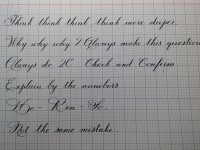 Think think think, think more deeper.
Why why why? Always make this question
Always do 2C. Check and Confirm.
Explain by the numbers
Ho - Ren - So.
Not the same mistake.